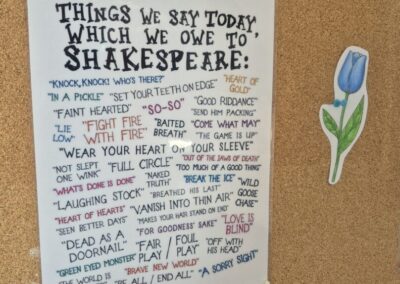 THINGS WE SAY TODAY,
WHICH WE OWE TO
SHAKESPEARE:
"KNOCK, KNOCK! WHO'S THERE?" "HEART OF GOLD"
"IN A PICKLE" "SET YOUR TEETH ON EDGE"
"FAINT HEARTED" "SO-SO" "GOOD RIDDANCE"
"SEND HIM PACKING"
"LIE LOW" "FIGHT FIRE WITH FIRE" "BAITED BREATH" "COME WHAT MAY"
"THE GAME IS UP"
"WEAR YOUR HEART ON YOUR SLEEVE"
"NOT SLEPT ONE WINK" "FULL CIRCLE" "OUT OF THE JAWS OF DEATH"
"TOO MUCH OF A GOOD THING"
"WHAT'S DONE IS DONE" "NAKED TRUTH" "BREAK THE ICE" "WILD GOOSE CHASE"
"LAUGHING STOCK" "BREATHED HIS LAST"
"HEART OF HEARTS" "VANISH INTO THIN AIR"
"SEEN BETTER DAYS" "MAKES YOUR HAIR STAND ON END"
"DEAD AS A DOORNAIL" "FOR GOODNESS' SAKE" "LOVE IS BLIND"
"FAIR PLAY / FOUL PLAY" "OFF WITH HIS HEAD"
"GREEN EYED MONSTER" "BRAVE NEW WORLD" "A SORRY SIGHT"
"THE WORLD IS "BE ALL / END ALL"